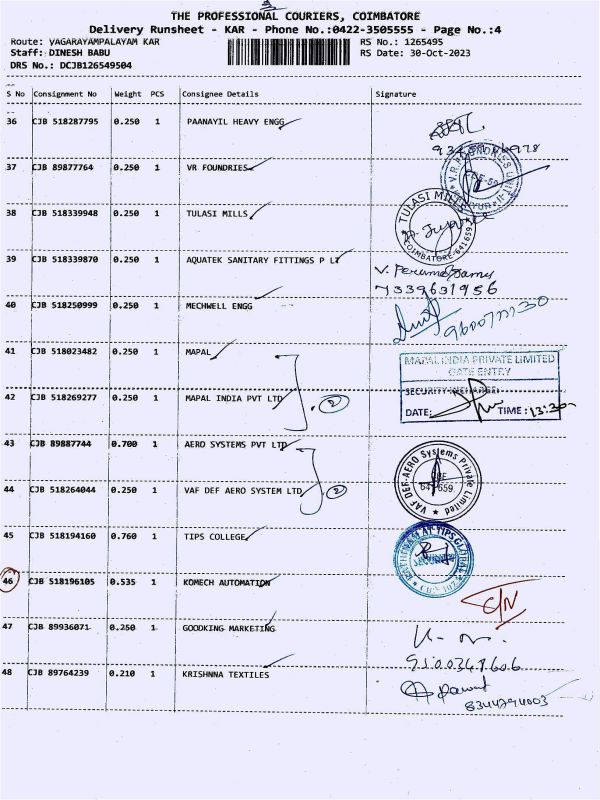 THE PROFESSIONAL COURIERS, COIMBATORE
Delivery Runsheet - KAR - Phone No.:0422-3505555 - Page No.:4
Route: VAGARAYAMPALAYAM KAR RS No.: 1265495
Staff: DINESH BABU RS Date: 30-Oct-2023
DRS No.: DCJB126549504
S No Consignment No Weight PCS Consignee Details Signature
36 CJB 518287795 0.250 1 PAANAYIL HEAVY ENGG
37 CJB 89877764 0.250 1 VR FOUNDRIES
38 CJB 518339948 0.250 1 TULASI MILLS
TULASI MILLS
COIMBATORE-641659
39 CJB 518339870 0.250 1 AQUATEK SANITARY FITTINGS P LT
7339631956
40 CJB 518250999 0.250 1 MECHWELL ENGG
41 CJB 518023482 0.250 1 MAPAL
MAPAL INDIA PRIVATE LIMITED
GATE ENTRY
42 CJB 518269277 0.250 1 MAPAL INDIA PVT LTD
2
DATE: TIME: 13:30
43 CJB 89887744 0.700 1 AERO SYSTEMS PVT LTD
44 CJB 518264044 0.250 1 VAF DEF AERO SYSTEM LTD
2
VAF DEF-AERO Systems Private Limited
45 CJB 518194160 0.760 1 TIPS COLLEGE
46 CJB 518196105 0.535 1 KOMECH AUTOMATION
47 CJB 89936071 0.250 1 GOODKING MARKETING
48 CJB 89764239 0.210 1 KRISHNNA TEXTILES
8344294003